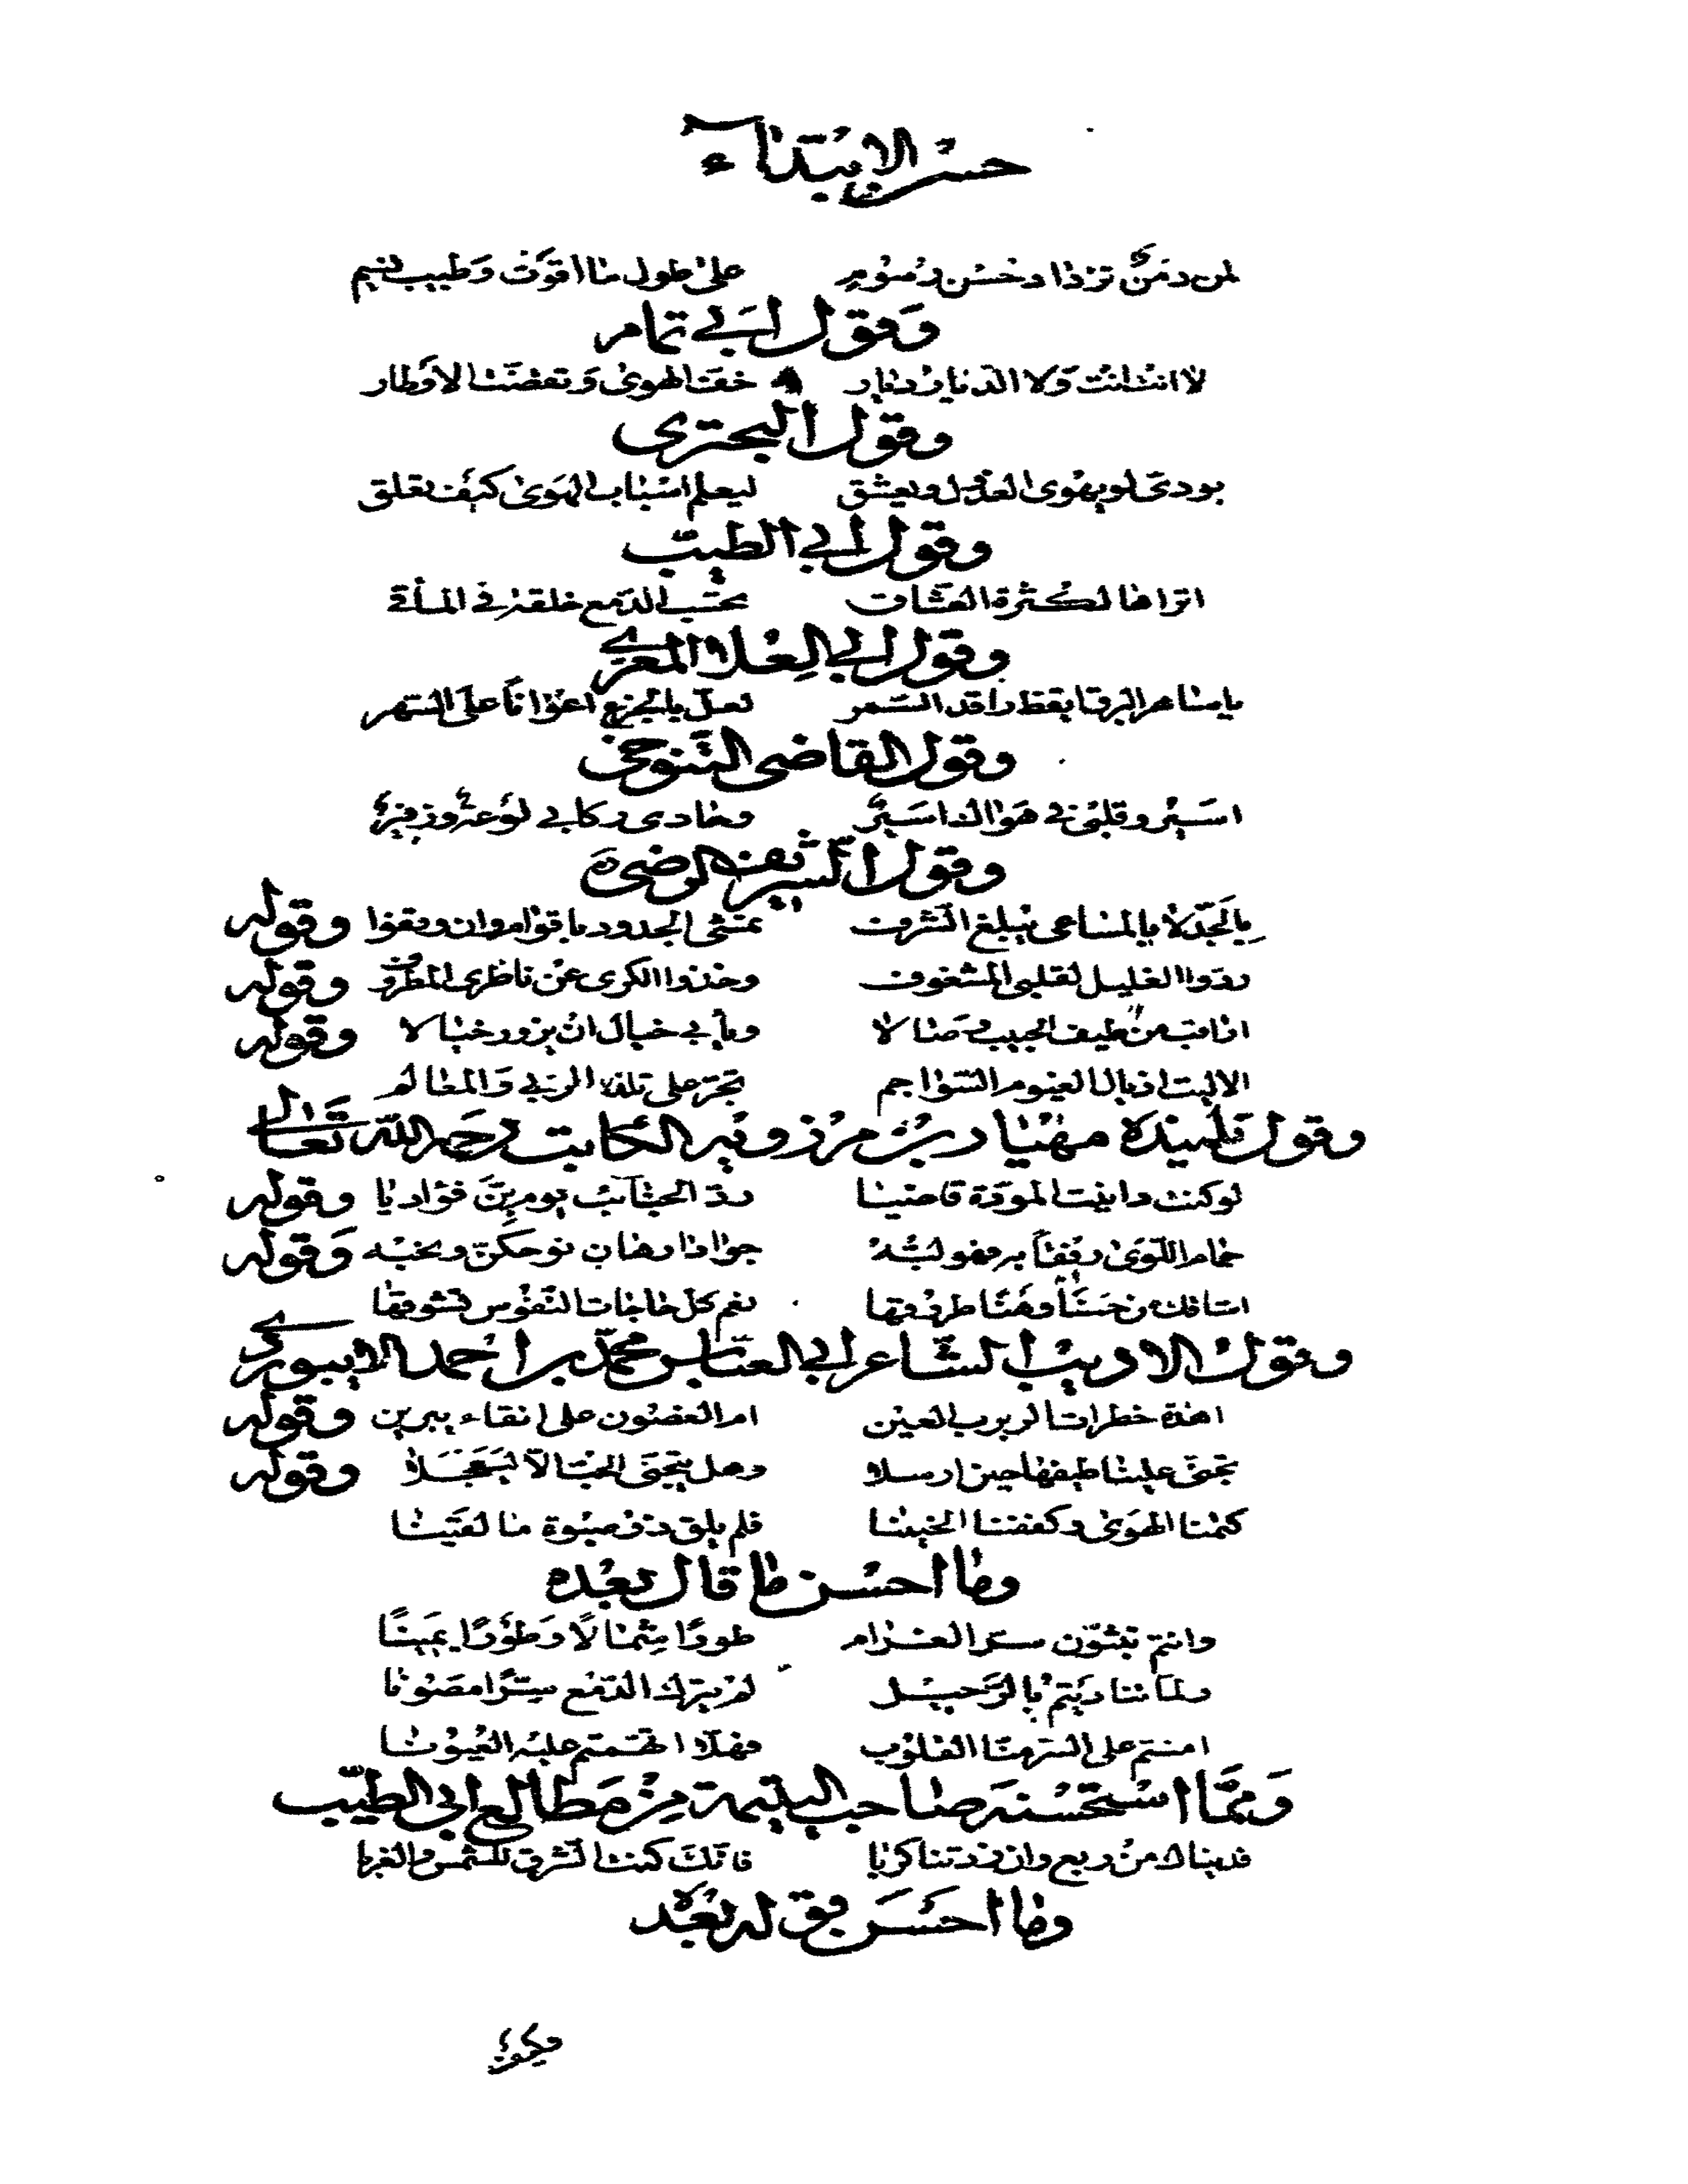 حسن الابتداء
لمن دمن تزداد حسن رسوم على طول ما اقوت وطيب نسيم
وقول ابي تمام
لا انت انت ولا الديار ديار خف الهوى وتقضت الاوطار
وقول البحتري
بودي لو يهوى العذول ويعشق ليعلم اسباب الهوى كيف تعلق
وقول ابي الطيب
اتراها لكثرة العشاق تحسب الدمع خلقة في المآقي
وقول ابي العلا المعري
يا ساهر البرق ايقظ راقد السمر لعل بالجزع اعوانا على السهر
وقول القاضي التنوخي
اسير وقلبي في هواك اسير وحادي ركابي لوعة وزفير
وقول الشريف الرضي
بالجد لا بالمساعي يبلغ الشرف تمشي الجدود باقوام وان وقفوا وقوله
ردوا الغليل لقلبي المشغوف وخذوا الكرى عن ناظري المطروف وقوله
اراقب من طيف الحبيب وصالا ويأبى خيال ان يزور خيالا وقوله
الا ليت اذيال الغيوم السواجم تجر على تلك الربى والمعالم
وقول تلميذه مهيار بن مرزويه الكاتب رحمه الله تعالى
لو كنت دانيت المودة قاصيا رد الحبائب يوم بن فؤاديا وقوله
حمام اللوى رفقا به فهو لبه جوادا رهان نوحكن ونحبه وقوله
اشاقك من حسناء وهنا طروقها نعم كل حاجات النفوس تشوقها
وقول الاديب الشاعر ابي العباس محمد بن احمد الابيوردي
اهذه خطرات الربرب العين ام الغصون على انقاء يبرين وقوله
تجنى علينا طيفها حين ارسلا وهل يتجنى الحب الا ليبخلا وقوله
كتمنا الهوى وكففنا الحنينا فلم يلق ذو صبوة ما لقينا
وما احسن ما قال بعده
وانتم تبثون سر الغرام طورا شمالا وطورا يمينا
ولما تناديتم بالرحيل لم يترك الدمع سرا مصونا
امنتم على السر منا القلوب فهلا اتهمتم عليه العيونا
ومما استحسنه صاحب اليتيمة من مطالع ابي الطيب
فديناك من ربع وان زدتنا كربا فانك كنت الشرق للشمس والغربا
وما احسن قوله بعده